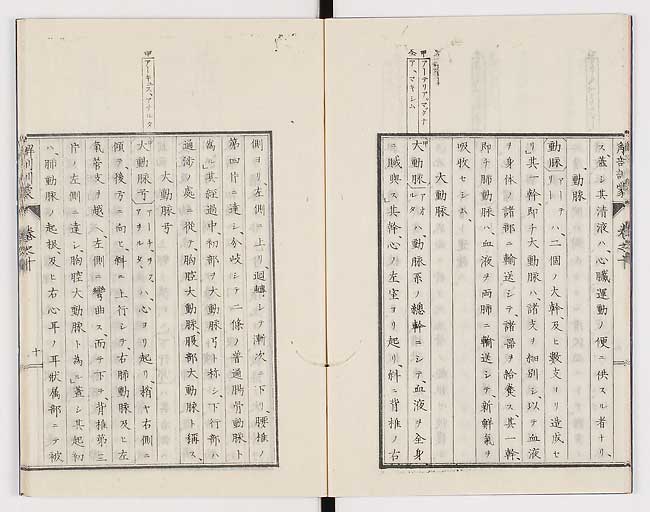 ス、蓋シ其清液ハ、心臓運動ノ便ニ供スル者ナリ、
動脈
動脈アーテリトハ、二個ノ大幹、及ヒ數支ヨリ造成セ
リ、其一幹、即チ大動脈ハ、諸支ヲ細別シ、以テ血液
ヲ身体ノ諸部ニ輸送シテ、諸器ヲ給養ス其一幹、
即チ肺動脈ハ、血液ヲ両肺ニ輸送シテ、新鮮氣ヲ
吸收セシム、
大動脈
大動脈アオルタハ、動脈系ノ總幹ニシテ、血液ヲ全身
ニ賦與ス、其幹、心ノ左室ヨリ起リ、斜ニ背椎ノ右
甲
アーテリア、マグナ
ア、マキシム
解剖訓蒙
卷之十
側ヨリ、左側ニ上リ、迴轉シテ漸次ニ下リ、腰椎ノ
第四片ニ達シ、分岐シテ、二條ノ普通腸骨動脈ト
為ル、其經過中、初部ヲ大動脈弓ト称シ、下行部ハ
通街ノ處ニ從テ、胸腔大動脈、腹部大動脈ト稱ス、
大動脈弓
大動脈弓アーチ、ヲフ、アオルタハ、心ヨリ起リ、稍ヤ右側ニ
傾テ、後方ニ向ヒ、斜ニ上行シテ、右肺動脈及ヒ左
氣管支ヲ越ヘ、左側ニ彎曲ス、而テ下ヲ、背椎第三
片ノ左側ニ達シ、胸腔大動脈ト為ル、蓋シ其起初
ハ、肺動脈ノ起根、及ヒ右心耳ノ耳狀属部ニテ被
甲
アーキュス、アオルタ
解剖訓蒙
卷之十
十